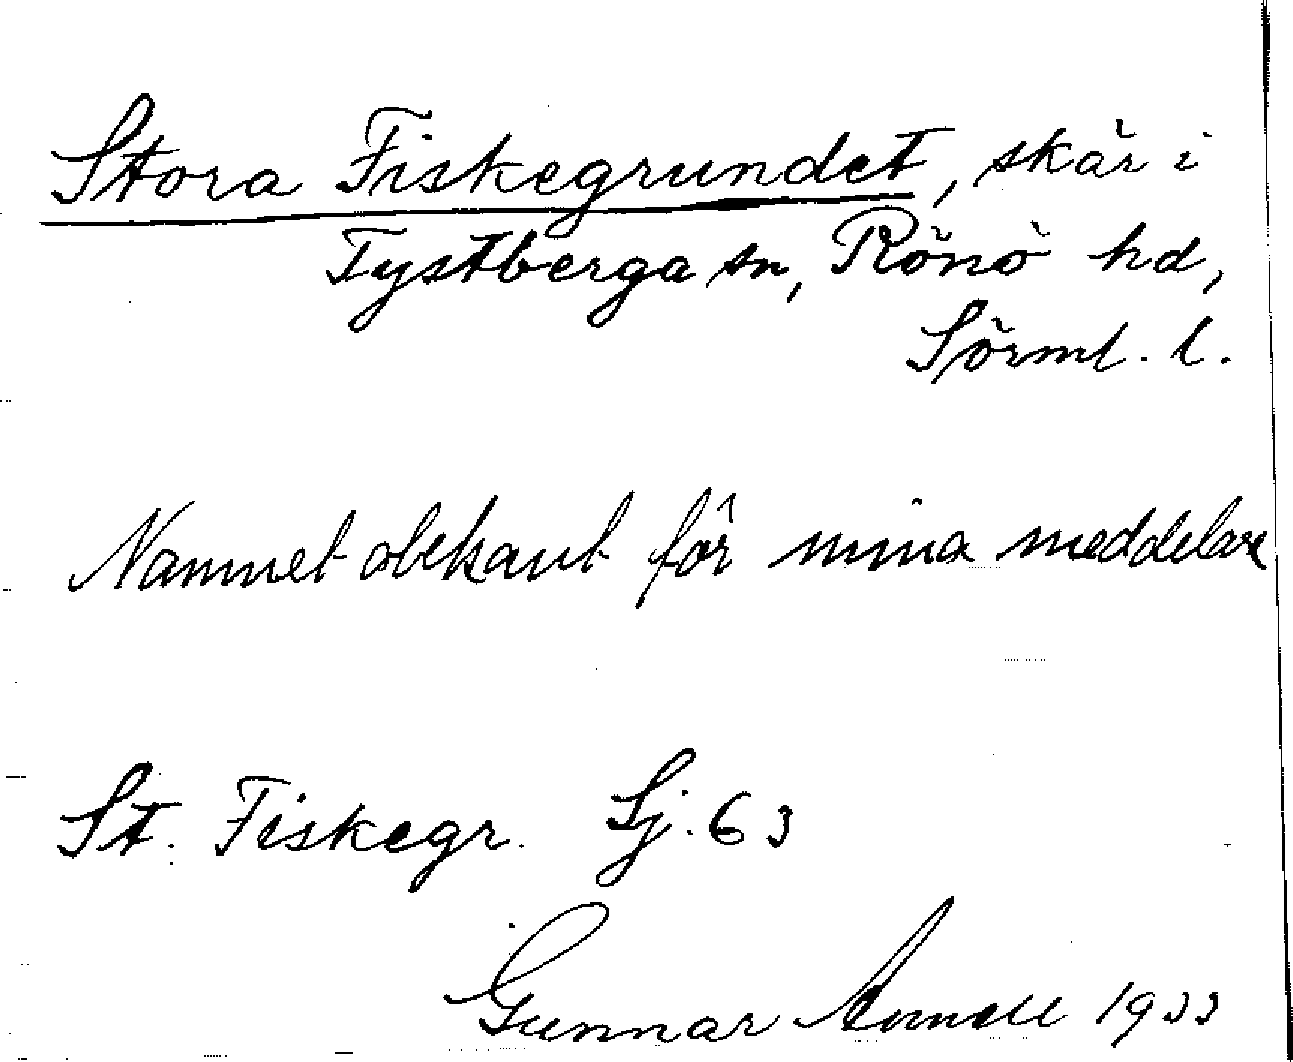 Stora Fiskegrundet, skär i
Tystberga sn, Rönö hd,
Sörml. l.
Namnet obekant för mina meddelare
St. Fiskegr. Sj. 63
Gunnar 1933